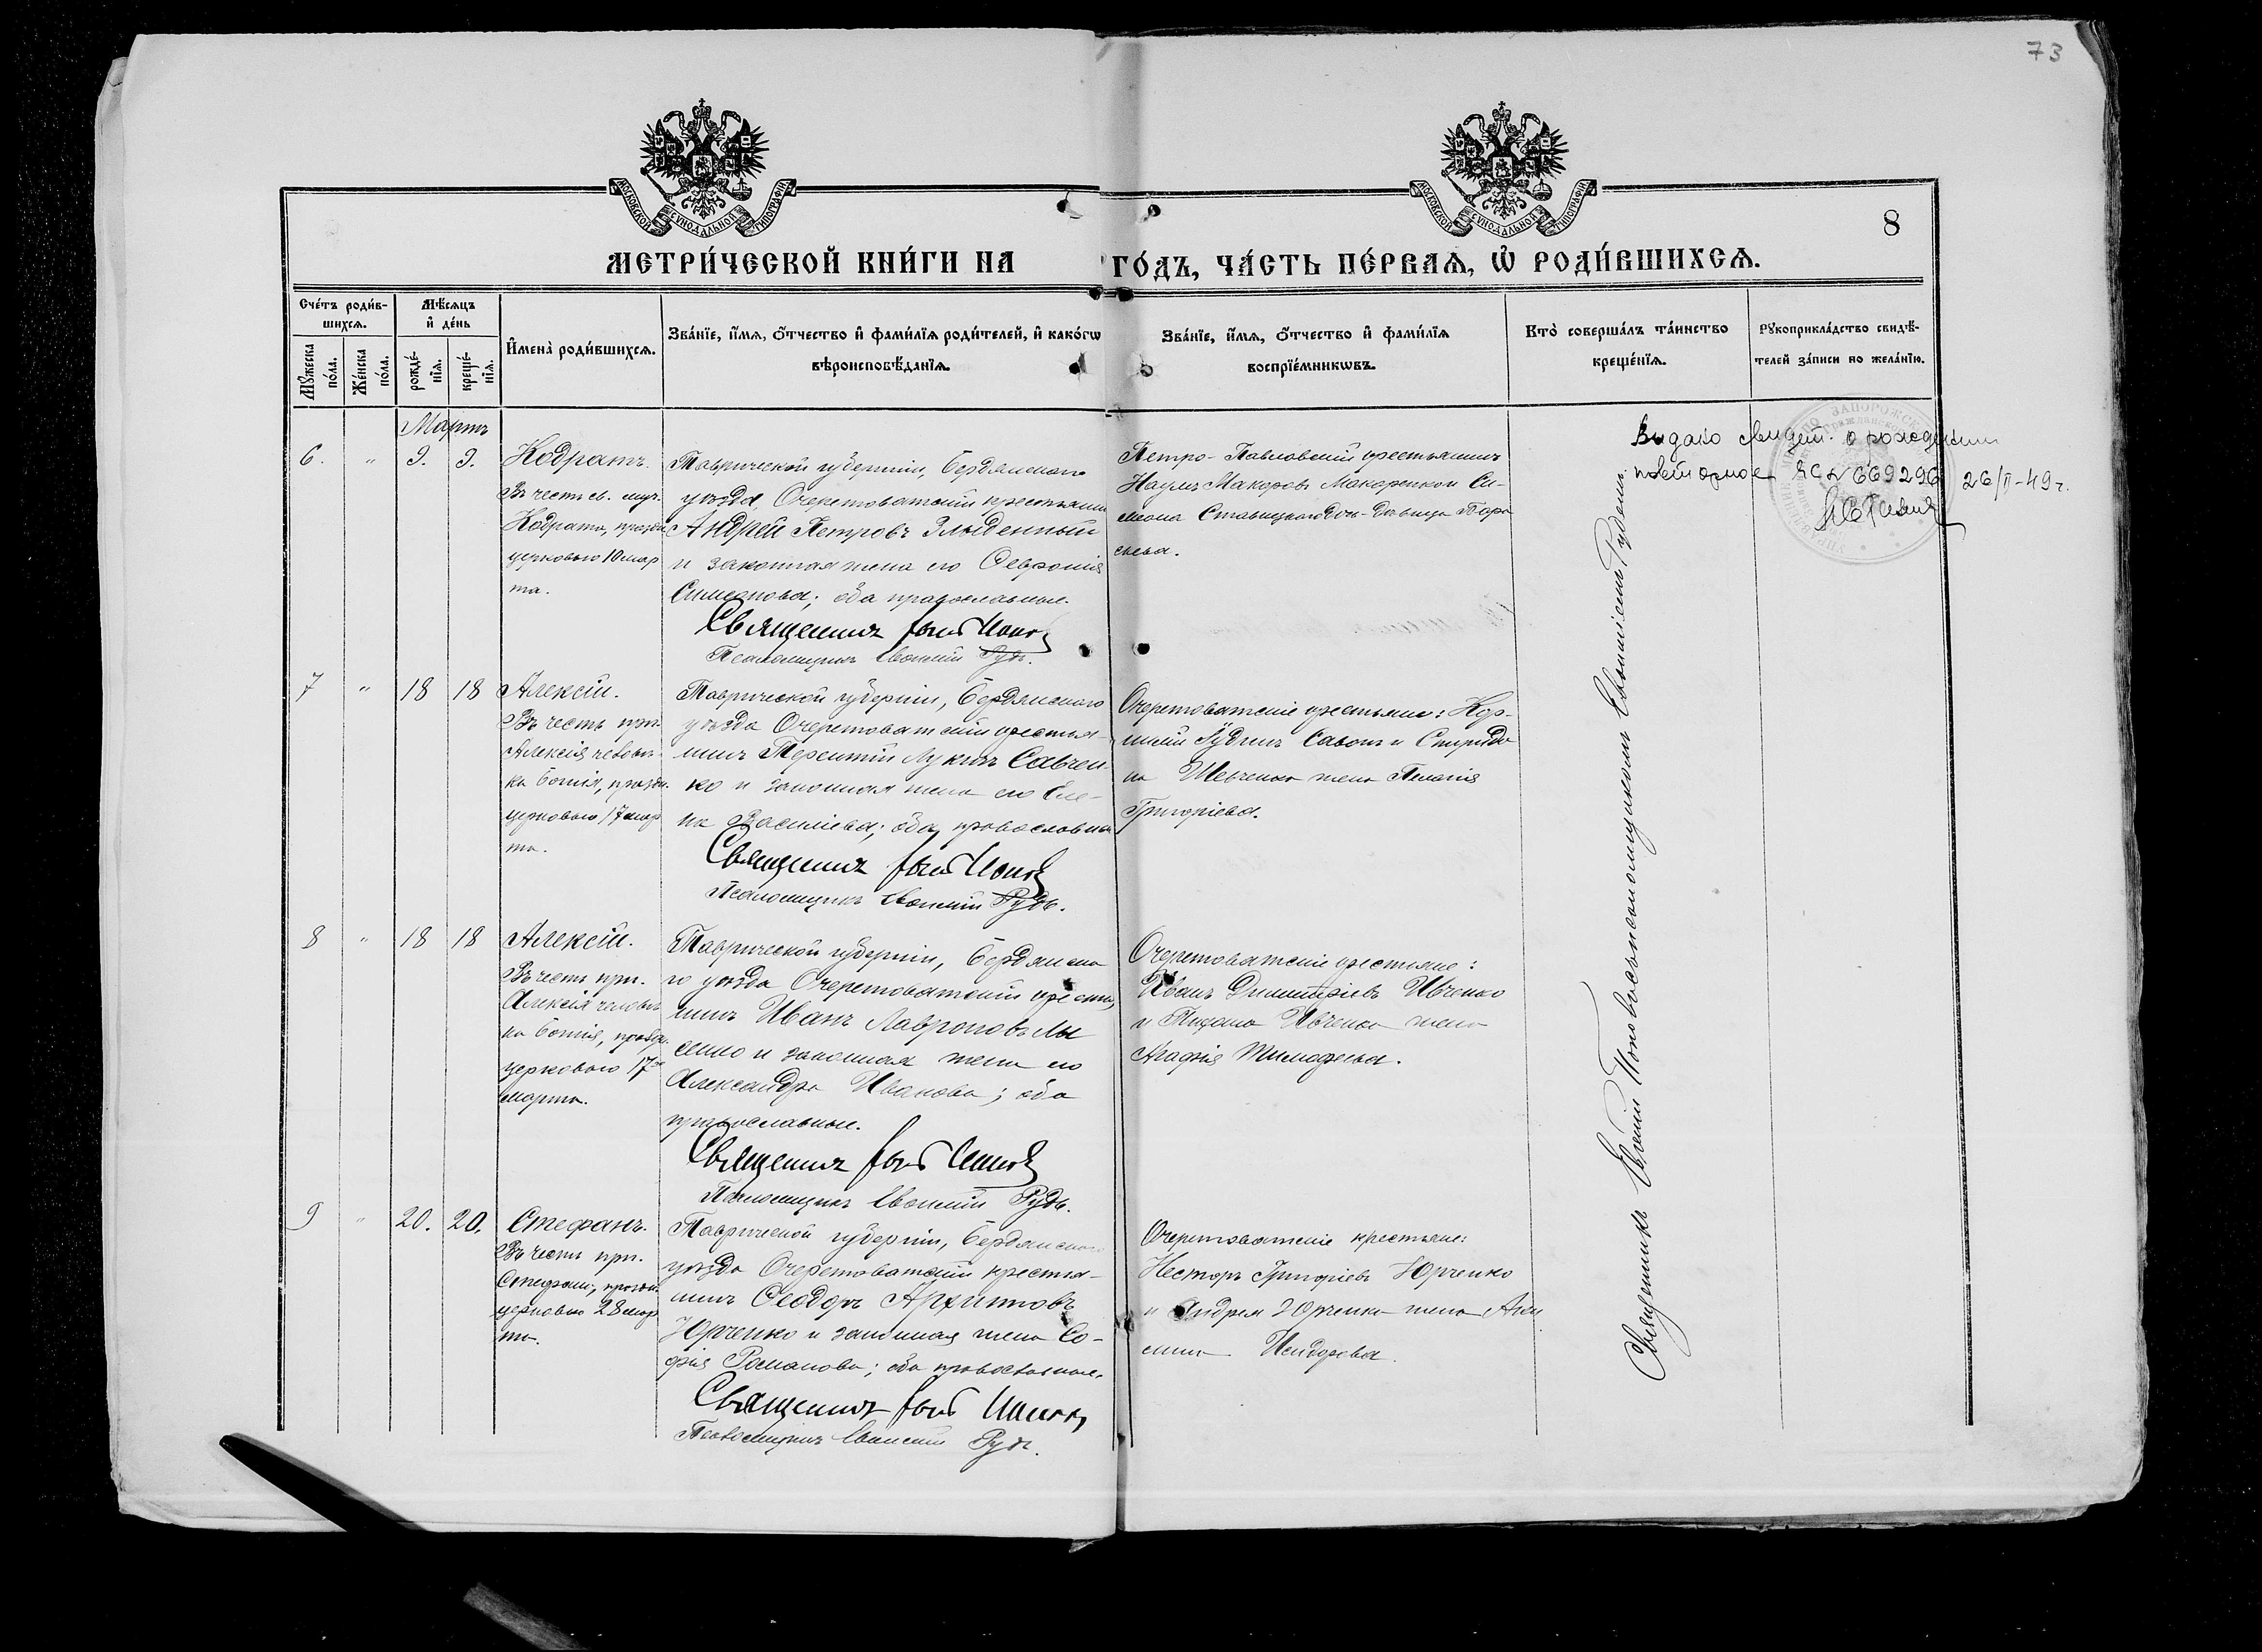 73
МОСКОВСКОЙ СѴНОДАЛЬНОЙ ТИПОГРАФІИ
МОСКОВСКОЙ СѴНОДАЛЬНОЙ ТИПОГРАФІИ
8
МЕТРИ́ЧЕСКОЙ КНИ́ГИ НА ГО́ДЪ, ЧА́СТЬ ПЕ́РВАѦ, Ѡ҆ РОДИ́ВШИХСѦ.
Сче́тъ роди́в-
шихсѧ.
Мꙋ́жеска
по́ла.
Же́нска
по́ла.
Мѣ́сѧцъ
и҆ де́нь
рожде́-
нїѧ.
креще́-
нїѧ.
И҆мена̀ роди́вшихсѧ.
Зва́нїе, и҆́мѧ, о҆́тчество и҆ фами́лїѧ роди́телей, и҆ како́гѡ
вѣроисповѣ́данїѧ.
Зва́нїе, и҆́мѧ, о҆́тчество и҆ фами́лїѧ
воспрїе́мникѡвъ.
Кто̀ соверша́лъ та́инство
креще́нїѧ.
Рꙋкоприкла́дство свидѣ́-
телей за́писи по жела́нїю.
Мартъ
6. " 9. 9.
Кодратъ.
Въ честь св. муч.
Кодрата, праздн.
церковью 10 мар
та.
Таврической губерніи, Бердянскаго
уѣзда, Очеретоватскій крестьянин
Андрей Петровъ Злыденный
и законная жена его Феvронія
Симеонова; оба православные.
Священникъ
Псаломщикъ Евѳимій Рудь.
Петро-Павловскій крестьянинъ
Наумъ Макаровъ Макаренко и Си-
меона
скева.
Видано свидет. о рождении
повторное ЯС № 669296 26/II-49г.
7 " 18 18
Алексій.
Въ честь прп.
Алексія человѣ-
ка Божія, праздн.
церковью 17 мар
та.
Таврической губерніи, Бердянскаго
уѣзда Очеретоватскій крестья-
нинъ Терентій Лукинъ Савчен-
ко и законная жена его Еле-
на Василіева; оба православные
Священникъ
Псаломщикъ Евѳимій Рудь.
Очеретоватскіе крестьяне: Кор-
нилій Савонъ и Спиридо
на Шевченка жена Пелагія
Григоріева.
8 " 18 18
Алексій.
Въ честь прп.
Алексія человѣ
ка Божія, праздн.
церковью 17го
марта.
Таврической губерніи, Бердянска
го уѣзда Очеретоватскій крестья
нинъ Иванъ Лавроновъ Лы
сенко и законная жена его
Александра Иванова; оба
православные.
Священникъ
Псаломщикъ Евѳимій Рудь.
Очеретоватскіе крестьяне:
Иванъ Димитріевъ Ивченко
и Ивченка жена
Агафія Тимофеева.
9 " 20. 20.
Стефанъ.
Въ честь прп.
Стефана, праздн.
церковью 28 мар
та.
Таврической губерніи, Бердянскаго
уѣзда Очеретоватскій крестья-
нинъ Ѳеодоръ Архиповъ
Юрченко и законная жена Со-
фія Романова; оба православные.
Священникъ
Псаломщикъ Евѳимій Рудь.
Очеретоватскіе крестьяне:
Несторъ Григоріевъ Юрченко
и Андрея Юрченка жена
Исидорева.
Священникъ съ псаломщикомъ Евѳиміемъ Рудемъ.